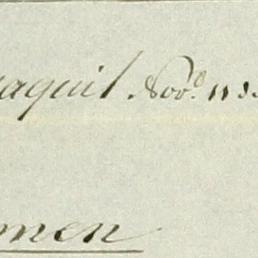 yaquil Nov.º 11
men